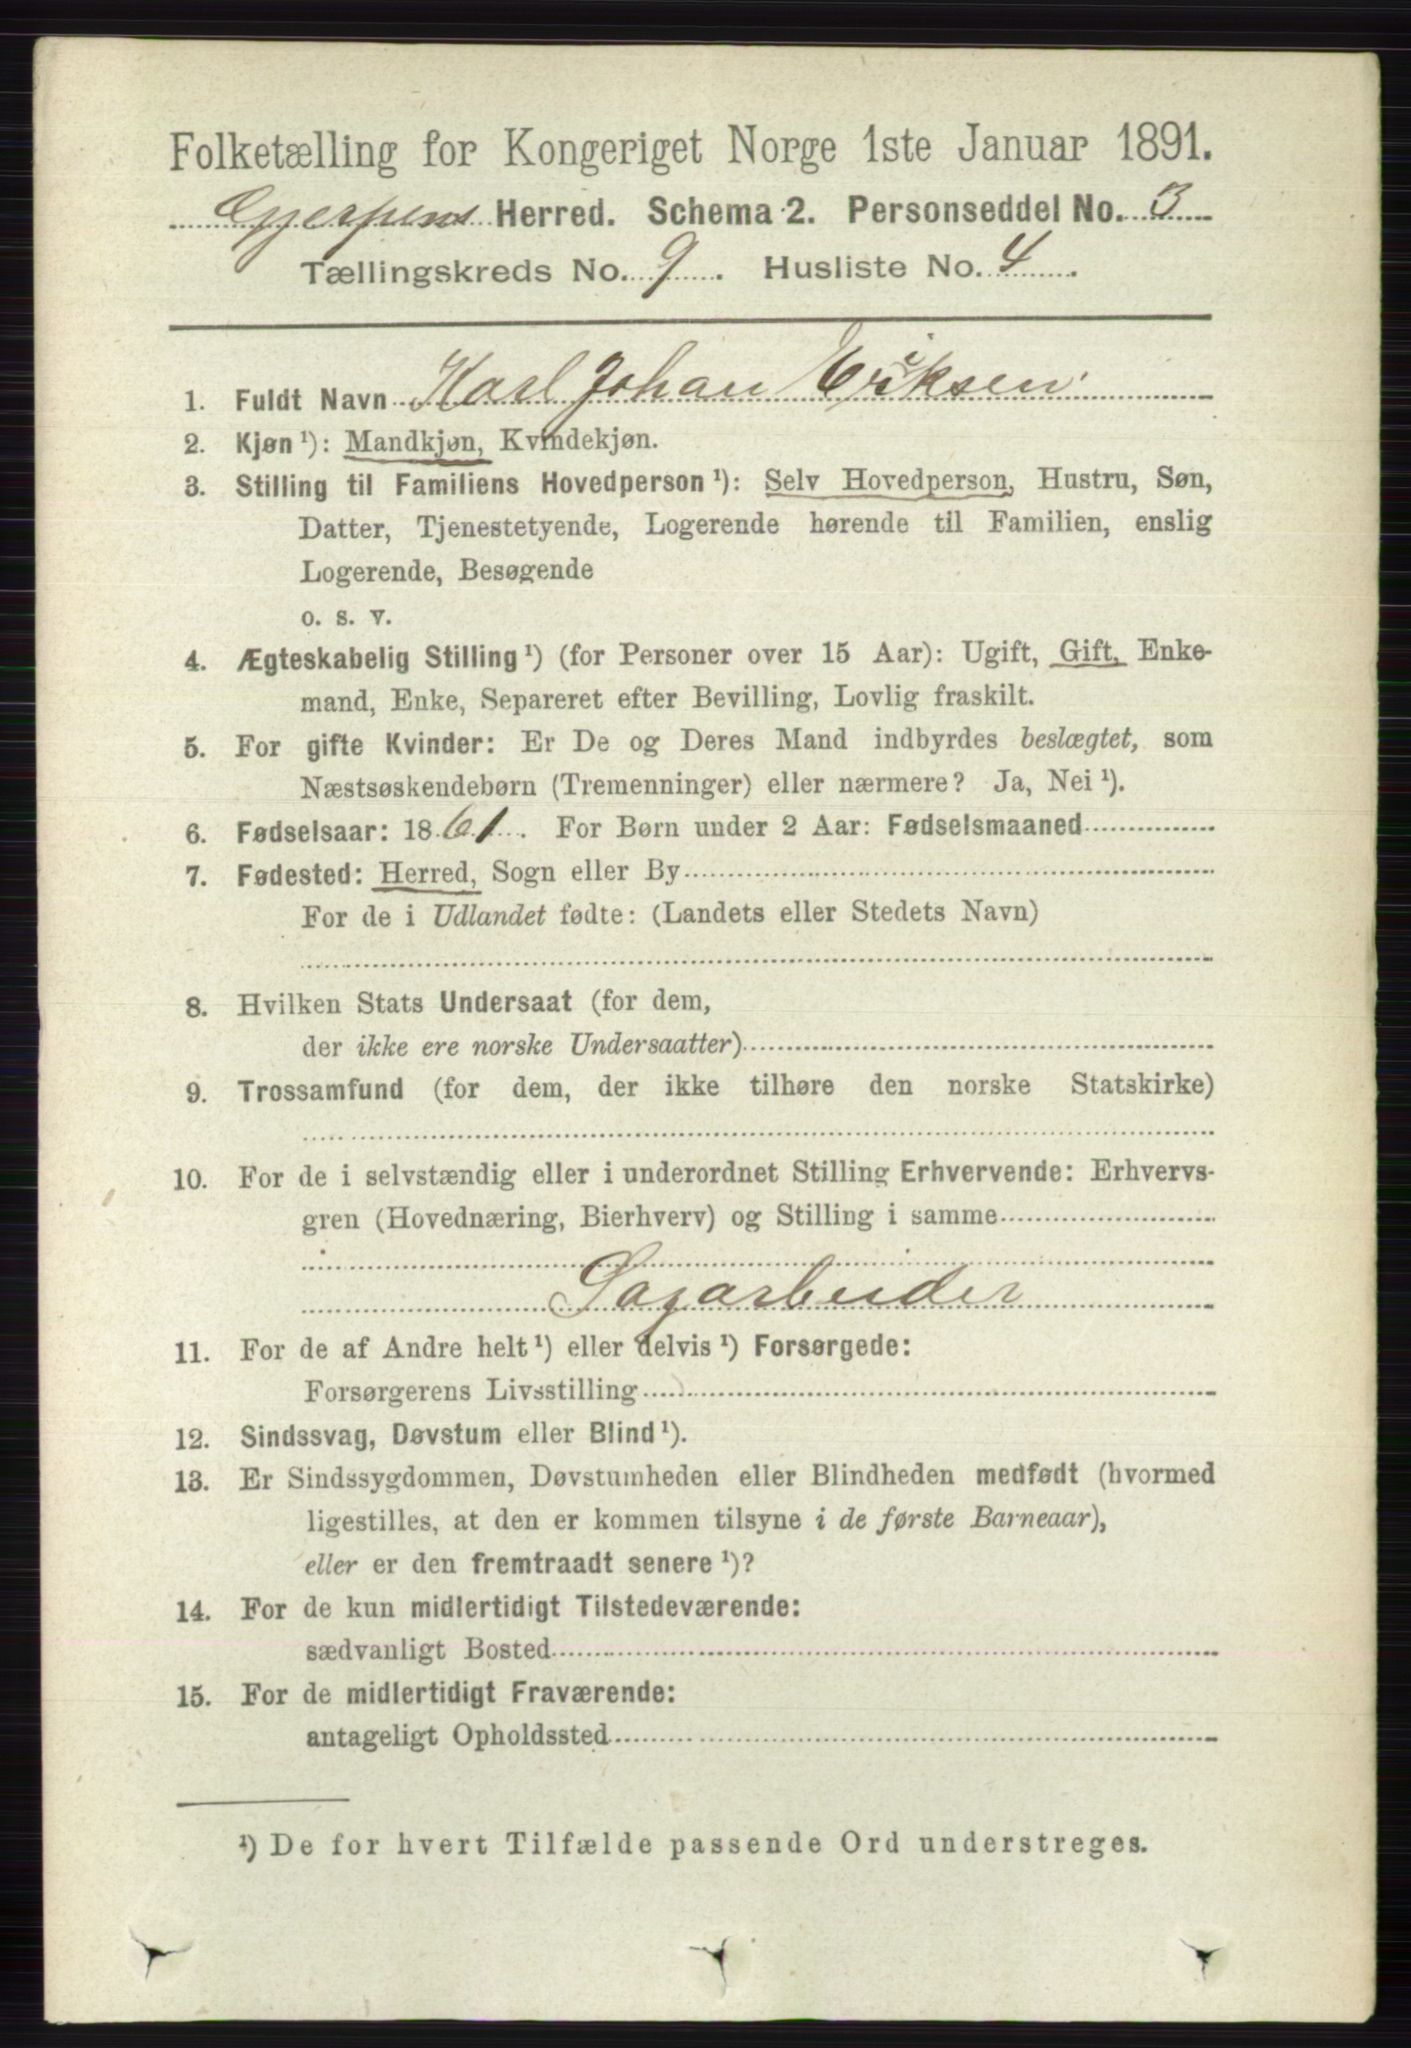 Folketælling for Kongeriget Norge 1ste Januar 1891.
Gjerpens Herred. Schema 2. Personseddel No. 3
Tællingskreds No. 9. Husliste No. 4.
1. Fuldt Navn Karl Johan Eriksen
2. Kjøn ¹): Mandkjøn, Kvindekjøn.
3. Stilling til Familiens Hovedperson ¹): Selv Hovedperson, Hustru, Søn,
Datter, Tjenestetyende, Logerende hørende til Familien, enslig
Logerende, Besøgende
o. s. v.
4. Ægteskabelig Stilling ¹) (for Personer over 15 Aar): Ugift, Gift, Enke-
mand, Enke, Separeret efter Bevilling, Lovlig fraskilt.
5. For gifte Kvinder: Er De og Deres Mand indbyrdes beslægtet, som
Næstsøskendebørn (Tremenninger) eller nærmere? Ja, Nei ¹).
6. Fødselsaar: 1861. For Børn under 2 Aar: Fødselsmaaned
7. Fødested: Herred, Sogn eller By
For de i Udlandet fødte: (Landets eller Stedets Navn)
8. Hvilken Stats Undersaat (for dem,
der ikke ere norske Undersaatter)
9. Trossamfund (for dem, der ikke tilhøre den norske Statskirke)
10. For de i selvstændig eller i underordnet Stilling Erhvervende: Erhvervs-
gren (Hovednæring, Bierhverv) og Stilling i samme
Sagarbeider
11. For de af Andre helt ¹) eller delvis ¹) Forsørgede:
Forsørgerens Livsstilling
12. Sindssvag, Døvstum eller Blind ¹).
13. Er Sindssygdommen, Døvstumheden eller Blindheden medfødt (hvormed
ligestilles, at den er kommen tilsyne i de første Barneaar),
eller er den fremtraadt senere ¹)?
14. For de kun midlertidigt Tilstedeværende:
sædvanligt Bosted
15. For de midlertidigt Fraværende:
antageligt Opholdssted
¹) De for hvert Tilfælde passende Ord understreges.